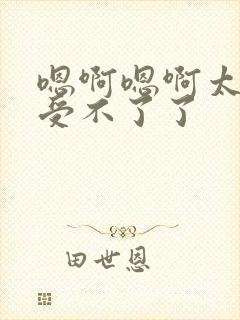 嗯啊嗯啊太
受不了了
田世恩